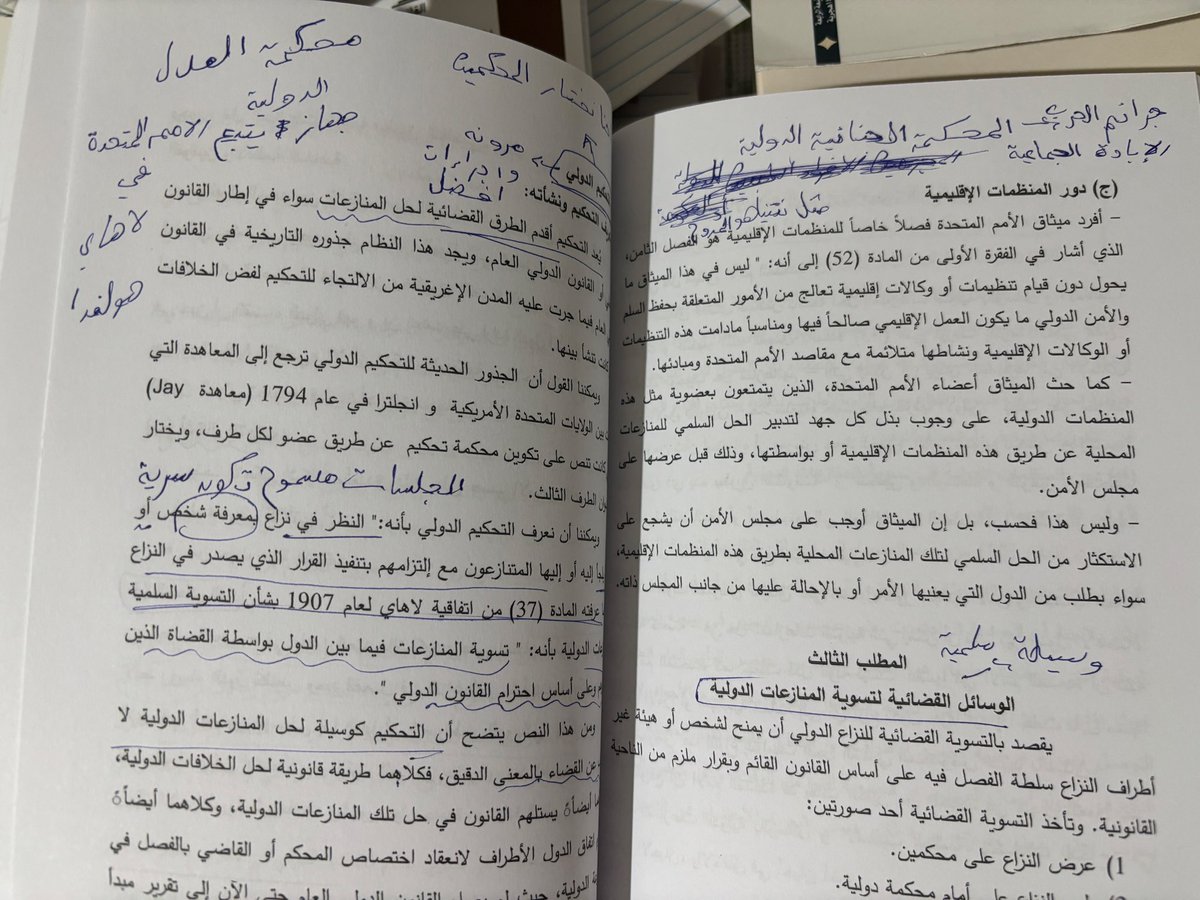 جرائم الحرب المحكمة الجنائية الدولية
الإبادة الجماعية
(ج) دور المنظمات الإقليمية
مثل نتنياهو
– أفرد ميثاق الأمم المتحدة فصلاً خاصاً للمنظمات الإقليمية هو الفصل الثامن،
الذي أشار في الفقرة الأولى من المادة (52) إلى أنه: " ليس في هذا الميثاق ما
يحول دون قيام تنظيمات أو وكالات إقليمية تعالج من الأمور المتعلقة بحفظ السلم
والأمن الدولي ما يكون العمل الإقليمي صالحاً فيها ومناسباً مادامت هذه التنظيمات
أو الوكالات الإقليمية ونشاطها متلائمة مع مقاصد الأمم المتحدة ومبادئها.
– كما حث الميثاق أعضاء الأمم المتحدة، الذين يتمتعون بعضوية مثل هذه
المنظمات الدولية، على وجوب بذل كل جهد لتدبير الحل السلمي للمنازعات
المحلية عن طريق هذه المنظمات الإقليمية أو بواسطتها، وذلك قبل عرضها على
مجلس الأمن.
– وليس هذا فحسب، بل إن الميثاق أوجب على مجلس الأمن أن يشجع على
الاستكثار من الحل السلمي لتلك المنازعات المحلية بطريق هذه المنظمات الإقليمية،
سواء بطلب من الدول التي يعنيها الأمر أو بالإحالة عليها من جانب المجلس ذاته.
وسيلة سلمية
المطلب الثالث
الوسائل القضائية لتسوية المنازعات الدولية
يقصد بالتسوية القضائية للنزاع الدولي أن يمنح لشخص أو هيئة غير
أطراف النزاع سلطة الفصل فيه على أساس القانون القائم وبقرار ملزم من الناحية
القانونية. وتأخذ التسوية القضائية أحد صورتين:
1) عرض النزاع على محكمين.
النزاع على أمام محكمة دولية.
نختار المحكمين
محكمة العدل
الدولية
جهاز يتبع الامم المتحدة
في
لاهاي
هولندا
مرونه
وإجراءات
افضل
الدولي
التحكيم ونشأته:
يُعد التحكيم أقدم الطرق القضائية لحل المنازعات سواء في إطار القانون
أو القانون الدولي العام، ويجد هذا النظام جذوره التاريخية في القانون
العام فيما جرت عليه المدن الإغريقية من الالتجاء للتحكيم لفض الخلافات
كانت تنشأ بينها.
ويمكننا القول أن الجذور الحديثة للتحكيم الدولي ترجع إلى المعاهدة التي
بين الولايات المتحدة الأمريكية و انجلترا في عام 1794 (معاهدة Jay)
كانت تنص على تكوين محكمة تحكيم عن طريق عضو لكل طرف، ويختار
الطرف الثالث.
الجلسات مسموح تكون سرية
ويمكننا أن نعرف التحكيم الدولي بأنه:" النظر في نزاع بمعرفة شخص أو
إليه أو إليها المتنازعون مع إلتزامهم بتنفيذ القرار الذي يصدر في النزاع
عرفته المادة (37) من اتفاقية لاهاي لعام 1907 بشأن التسوية السلمية
الدولية بأنه: " تسوية المنازعات فيما بين الدول بواسطة القضاة الذين
وعلى أساس احترام القانون الدولي ".
ومن هذا النص يتضح أن التحكيم كوسيلة لحل المنازعات الدولية لا
عن القضاء بالمعنى الدقيق، فكلاهما طريقة قانونية لحل الخلافات الدولية،
أيضاً يستلهم القانون في حل تلك المنازعات الدولية، وكلاهما أيضاً
اتفاق الدول الأطراف لانعقاد اختصاص المحكم أو القاضي بالفصل في
الدولية، حيث لم يصل القانون الدولي العام حتى الآن إلى تقرير مبدأ